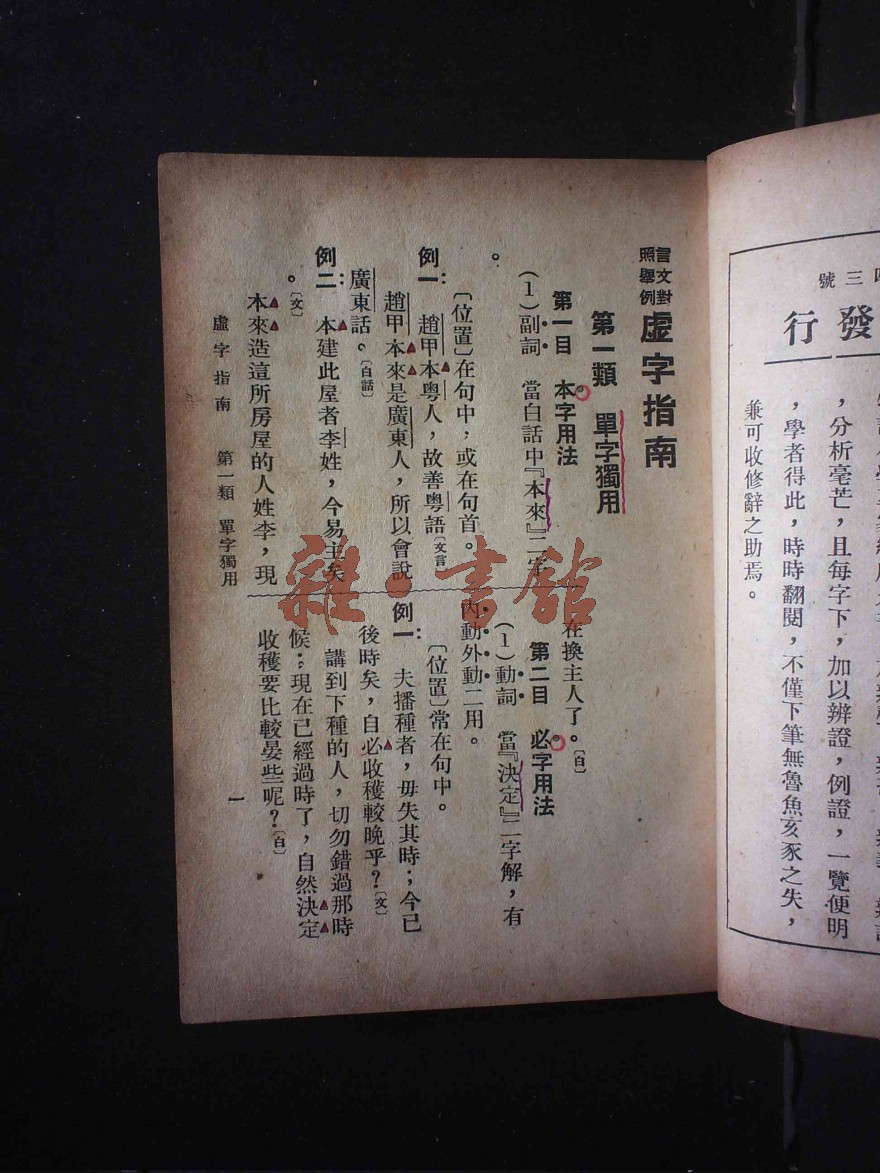 言文對
照舉例
虛字指南
第一類　單字獨用
第一目　本字用法
(1)副詞　當白話中『本來』二字
。
〔位置〕在句中，或在句首。
例一：趙甲本粵人，故善粵語〔文言〕
趙甲本來是廣東人，所以會說
廣東話。〔白話〕
例二：本建此屋者李姓，今易主矣
。〔文〕
本來造這所房屋的人姓李，現
在換主人了。〔白〕
第二目　必字用法
(1)動詞　當『決定』二字解，有
內動外動二用。
〔位置〕常在句中。
例一：夫播種者，毋失其時；今已
後時矣，自必收穫較晚乎？〔文〕
講到下種的人，切勿錯過那時
候；現在已經過時了，自然決定
收穫要比較晏些呢？〔白〕
虛字指南　第一類　單字獨用
一
雜·書館
三號
發行
，分析毫芒，且每字下，加以辨證，例證，一覽便明
，學者得此，時時翻閱，不僅下筆無魯魚亥豕之失，
兼可收修辭之助焉。